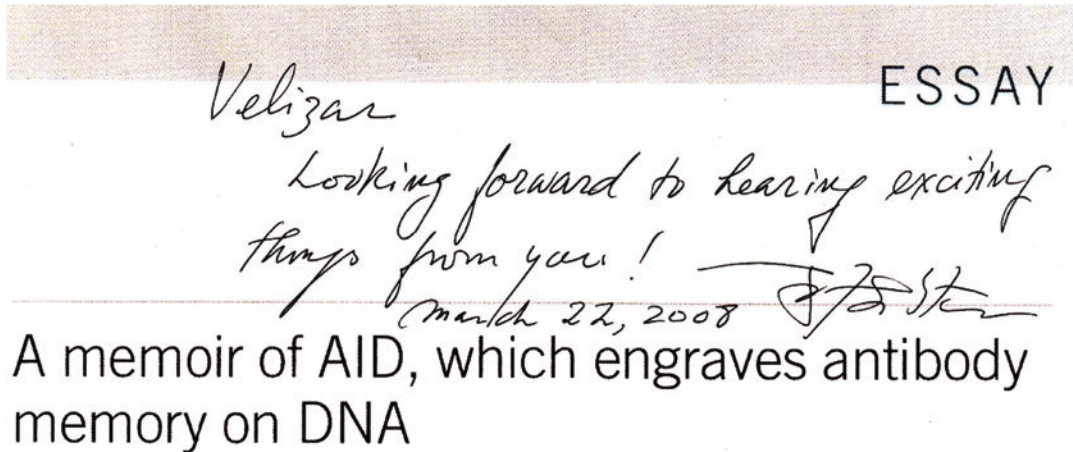 ESSAY
Velizar
Looking forward to hearing exciting
things from you!
march 22, 2008
A memoir of AID, which engraves antibody
memory on DNA